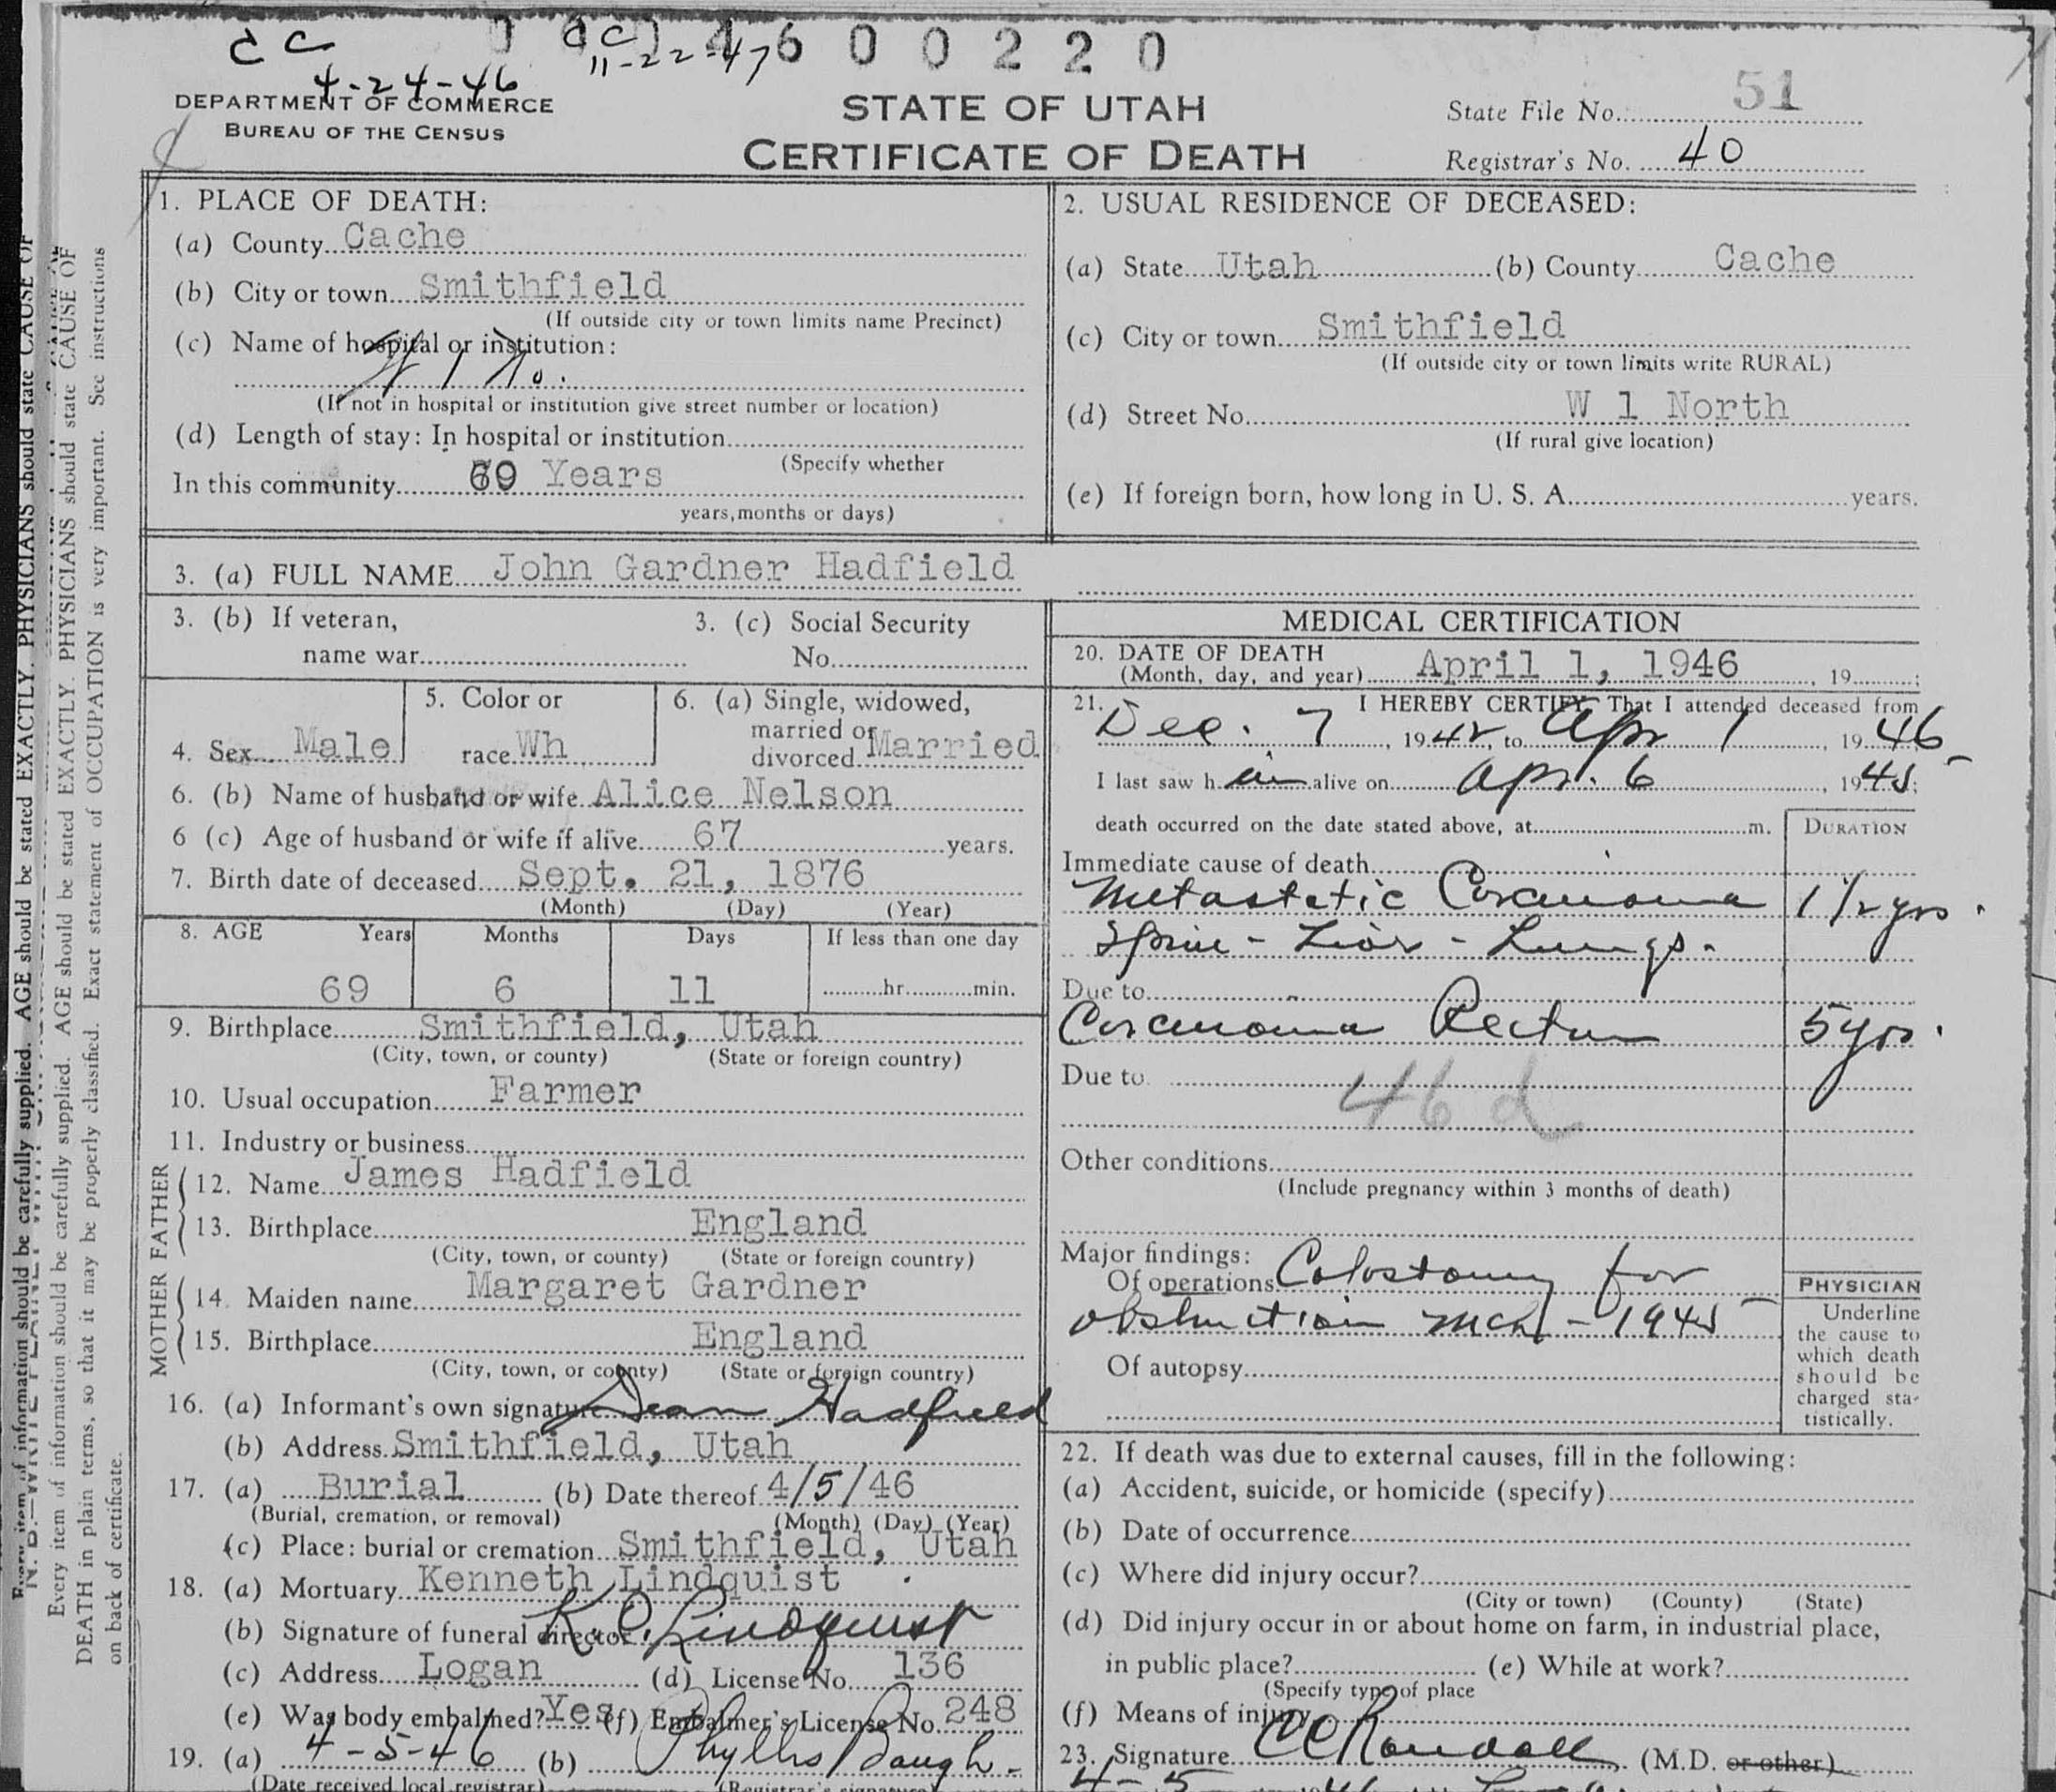 cc
4-24-46
cc
11-22-47
4600220
DEPARTMENT OF COMMERCE
BUREAU OF THE CENSUS
STATE OF UTAH
CERTIFICATE OF DEATH
State File No. 51
Registrar's No. 40
1. PLACE OF DEATH:
(a) County Cache
(b) City or town Smithfield
(If outside city or town limits name Precinct)
(c) Name of hospital or institution:
W 1 No.
(If not in hospital or institution give street number or location)
(d) Length of stay: In hospital or institution
(Specify whether
In this community 69 Years
years, months or days)
2. USUAL RESIDENCE OF DECEASED:
(a) State Utah (b) County Cache
(c) City or town Smithfield
(If outside city or town limits write RURAL)
(d) Street No. W 1 North
(If rural give location)
(e) If foreign born, how long in U. S. A. years.
3. (a) FULL NAME John Gardner Hadfield
3. (b) If veteran,
name war
3. (c) Social Security
No.
4. Sex Male
5. Color or
race Wh
6. (a) Single, widowed,
married or
divorced Married
6. (b) Name of husband or wife Alice Nelson
6 (c) Age of husband or wife if alive 67 years.
7. Birth date of deceased Sept. 21, 1876
(Month) (Day) (Year)
8. AGE Years Months Days If less than one day
69 6 11 hr. min.
9. Birthplace Smithfield, Utah
(City, town, or county) (State or foreign country)
10. Usual occupation Farmer
11. Industry or business
FATHER
12. Name James Hadfield
13. Birthplace England
(City, town, or county) (State or foreign country)
MOTHER
14. Maiden name Margaret Gardner
15. Birthplace England
(City, town, or county) (State or foreign country)
16. (a) Informant's own signature Dean Hadfield
(b) Address Smithfield, Utah
17. (a) Burial (b) Date thereof 4/5/46
(Burial, cremation, or removal) (Month) (Day) (Year)
(c) Place: burial or cremation Smithfield, Utah
18. (a) Mortuary Kenneth Lindquist
(b) Signature of funeral director K. O. Lindquist
(c) Address Logan (d) License No. 136
(e) Was body embalmed? Yes (f) Embalmer's License No. 248
19. (a) 4-5-46 (b) Phyllis Baugh
(Date received local registrar) (Registrar's signature)
MEDICAL CERTIFICATION
20. DATE OF DEATH
(Month, day, and year) April 1, 1946, 19
21. I HEREBY CERTIFY, That I attended deceased from
Dec. 7, 1942, to Apr 1, 1946
I last saw him alive on Apr. 6, 1945;
death occurred on the date stated above, at m.
DURATION
Immediate cause of death
Metastatic Carcinoma 1 1/2 yrs.
Spine - Liver - Lungs.
Due to
Carcinoma Rectum 5 yrs.
Due to
46 d
Other conditions
(Include pregnancy within 3 months of death)
Major findings:
Of operations Colostomy for
obstruction Mch - 1945
Of autopsy
PHYSICIAN
Underline
the cause to
which death
should be
charged sta-
tistically.
22. If death was due to external causes, fill in the following:
(a) Accident, suicide, or homicide (specify)
(b) Date of occurrence
(c) Where did injury occur?
(City or town) (County) (State)
(d) Did injury occur in or about home on farm, in industrial place,
in public place? (e) While at work?
(Specify type of place
(f) Means of injury
23. Signature CC Randall (M.D. or other)
4-5
Every item of information should be carefully supplied. AGE should be stated EXACTLY. PHYSICIANS should state CAUSE OF
DEATH in plain terms, so that it may be properly classified. Exact statement of OCCUPATION is very important. See instructions
on back of certificate.